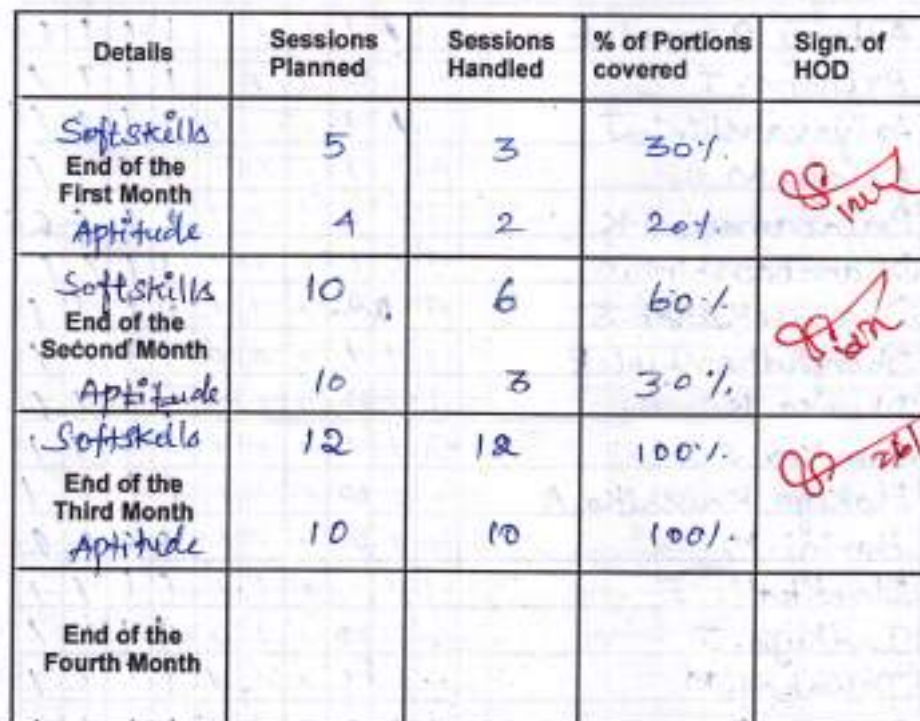 Details Sessions Planned Sessions Handled % of Portions covered Sign. of HOD
Softskills 5 3 30%
End of the
First Month
Aptitude 4 2 20%
Softskills 10 6 60%
End of the
Second Month
Aptitude 10 3 30%
Softskills 12 12 100%
End of the
Third Month
Aptitude 10 10 100%
End of the
Fourth Month